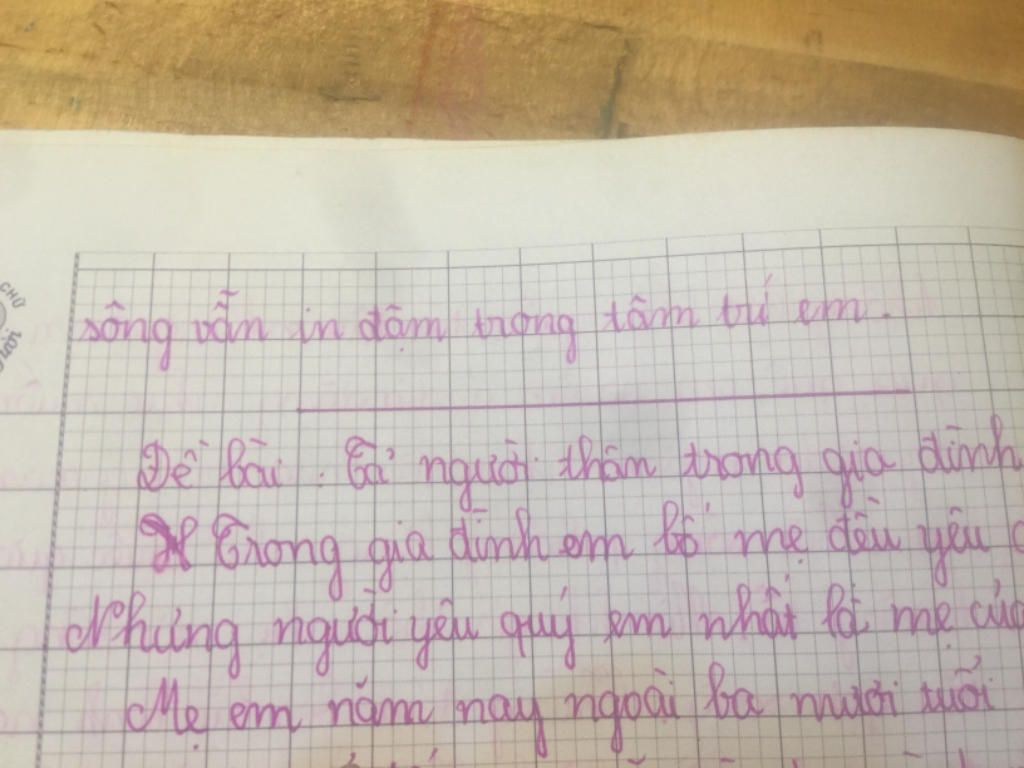 CHỮ
sông vẫn in đậm trong tâm trí em.
Đề bài: Tả người thân trong gia đình
Trong gia đình em bố mẹ đều yêu
Nhưng người yêu quý em nhất là mẹ của
Mẹ em năm nay ngoài ba mươi tuổi